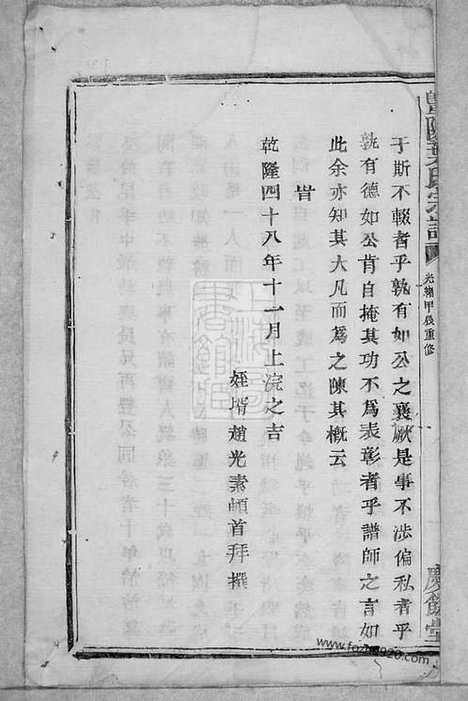 光緒甲辰重修
于斯不輟者乎孰有如公之襄厥是事不涉偏私者乎
孰有德如公肯自掩其功不為表彰者乎譜師之言如
此余亦知其大凡而為之陳其概云
旹
乾隆四十八年十一月上浣之吉
姪壻趙光素頓首拜撰
www.fozu2020.com